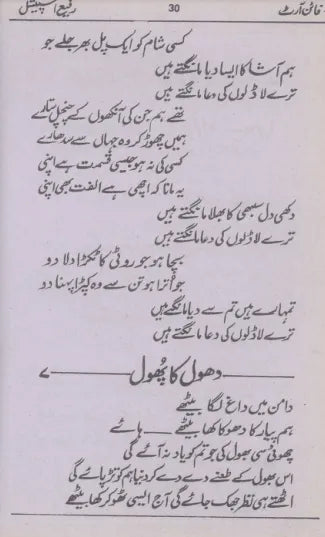 فائن آرٹ 30 رفیع اسپیشل
کسی شام کو ایک پل بھر جلے جو
ہم آشا کا ایسا دیا مانگتے ہیں
ترے لاڈلوں کی دعا مانگتے ہیں
تھے ہم جن کی آنکھوں کے چنچل ستارے
ہمیں چھوڑ کر وہ جہاں سے سدھارے
کسی کی نہ ہو جیسی قسمت ہے اپنی
یہ مانا کہ اچھی ہے الفت بھی اپنی
دکھی دل سبھی کا بھلا مانگتے ہیں
ترے لاڈلوں کی دعا مانگتے ہیں
بچا ہو جو روٹی کا ٹکڑا دلا دو
جو اترا ہو تن سے وہ کپڑا پہنا دو
تمہارے ہیں تم سے دیا مانگتے ہیں
ترے لاڈلوں کی دعا مانگتے ہیں
دھول کا پُھول ۷
دامن میں داغ لگا بیٹھے
ہم پیار کا دھوکا کھا بیٹھے ــــ ہائے
چھوٹی سی بھول کی جو تم کو یاد نہ آئے گی
اس بھول کے طعنے دے دے کر دنیا ہم کو تڑپائے گی
اٹھتے ہی نظر جھک جائے گی آج ایسی ٹھوکر کھا بیٹھے